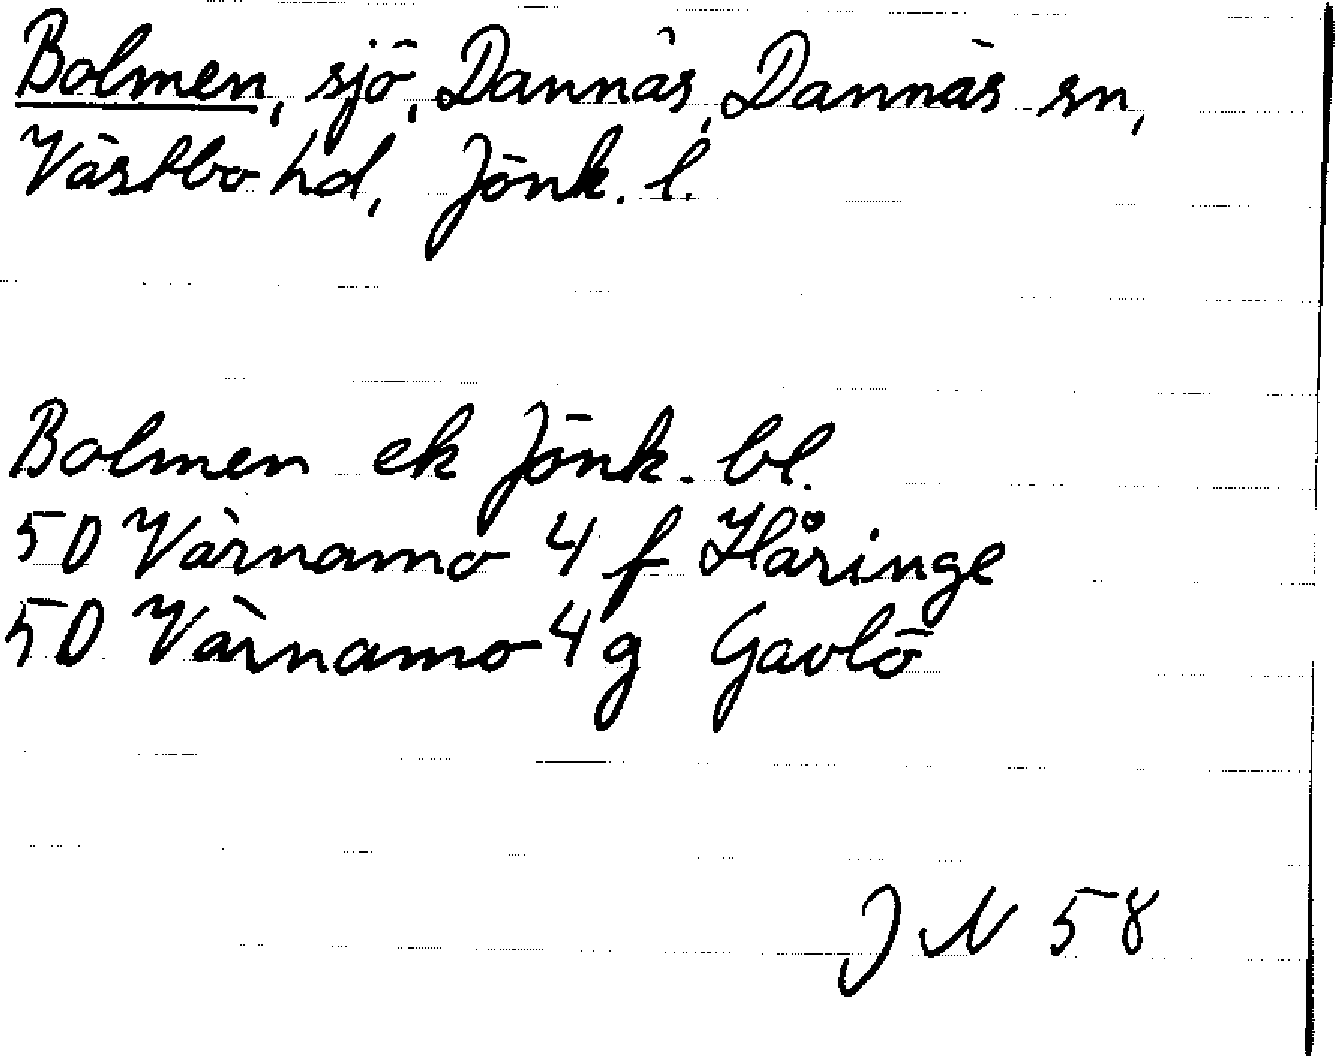 Bolmen, sjö, Dannäs, Dannäs sn,
Västbo hd, Jönk. l.
Bolmen ek Jönk. bl.
5D Värnamo 4 f Håringe
5D Värnamo 4 g Gavlö
J N 58